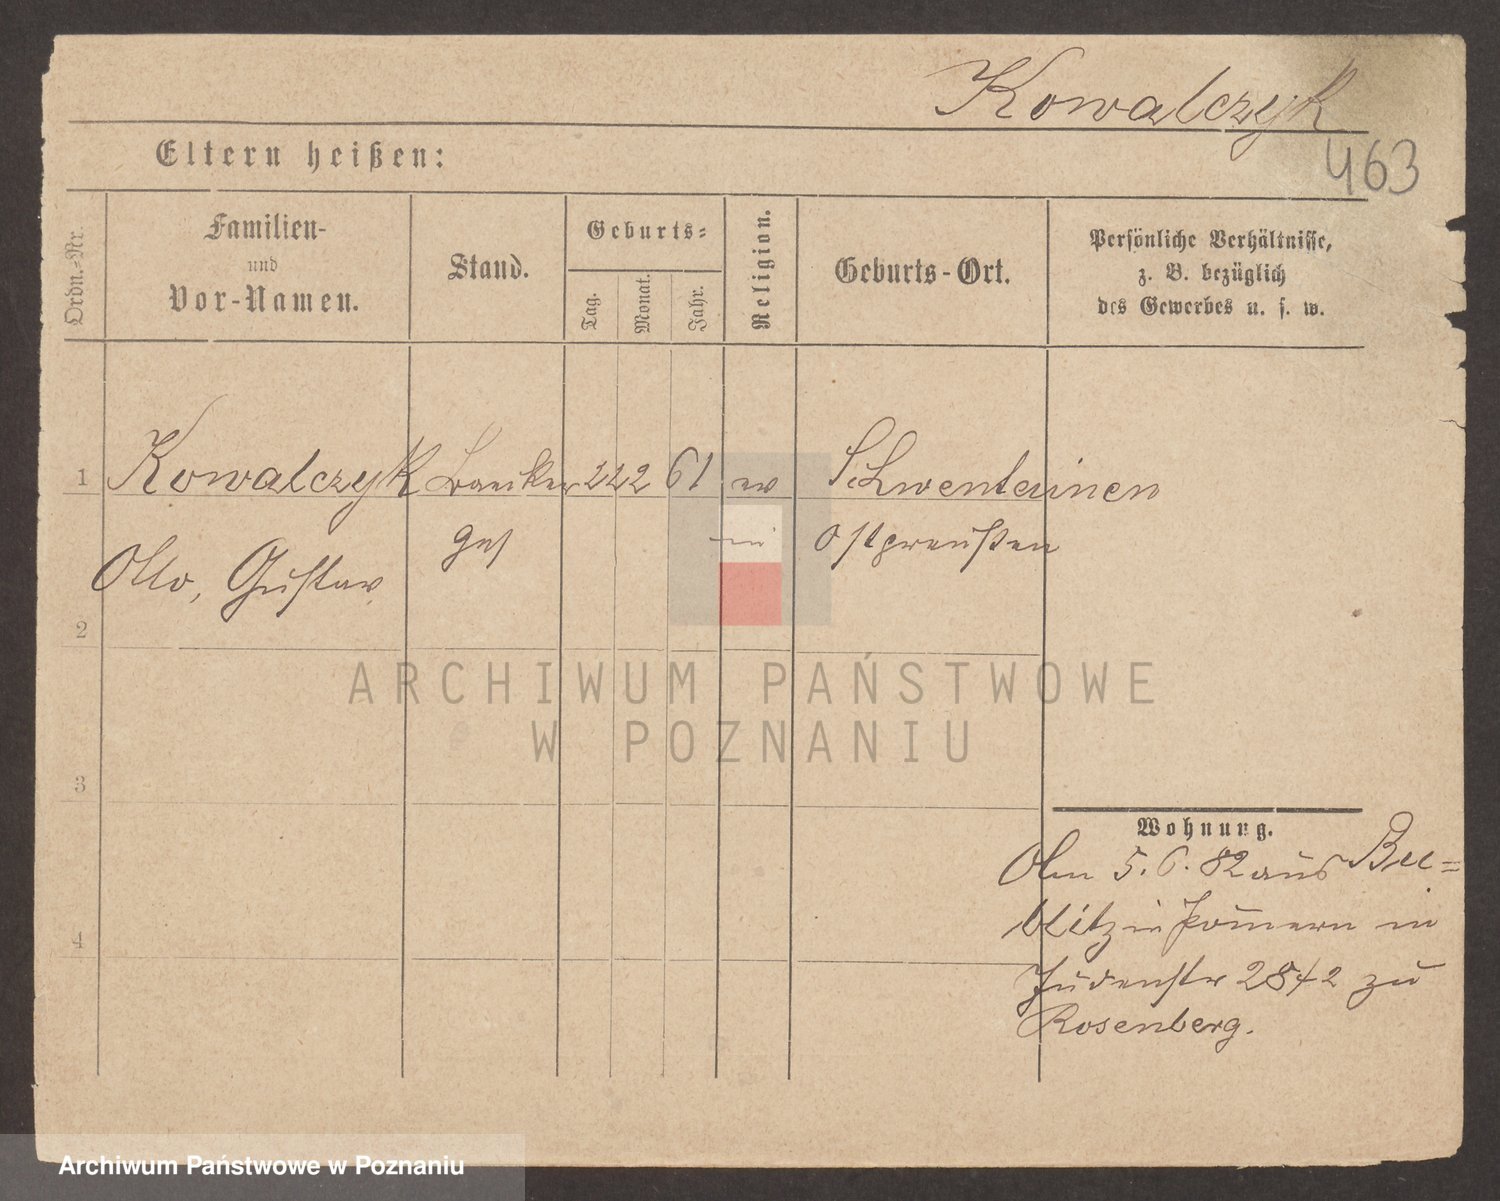 Kowalczyk
463
Eltern heißen:
Ordn.-Nr.
Familien-
und
Vor-Namen.
Stand.
Geburts-
Tag.
Monat.
Jahr.
Religion.
Geburts-Ort.
Persönliche Verhältnisse,
z. B. bezüglich
des Gewerbes u. s. w.
1 Kowalczyk 22 2 61 ev Schwentainen
Otto, Gustav Ostpreußen
2
3
4
Wohnung.
5. 6. 82 aus Bu=
blitz in Pommern in
Judenstr 28/2 zu
Rosenberg.
ARCHIWUM PAŃSTWOWE
W POZNANIU
Archiwum Państwowe w Poznaniu